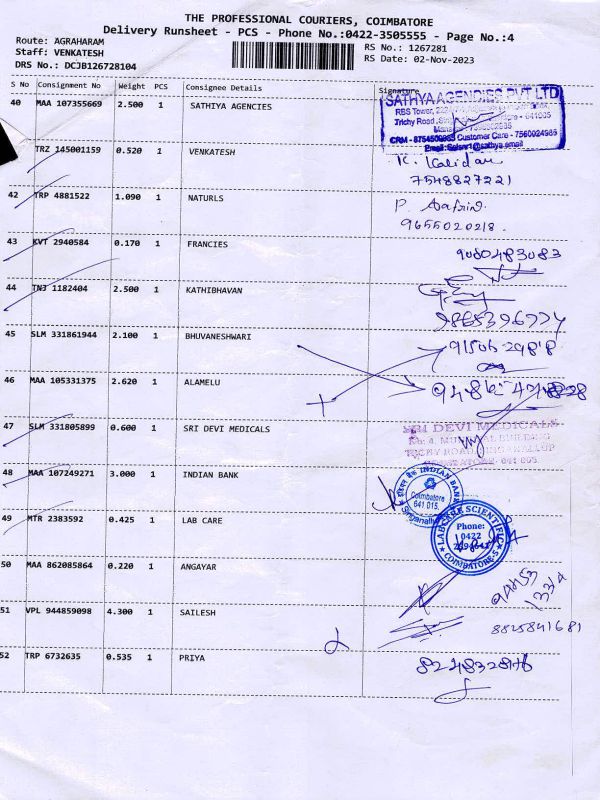 THE PROFESSIONAL COURIERS, COIMBATORE
Delivery Runsheet - PCS - Phone No.:0422-3505555 - Page No.:4
Route: AGRAHARAM
Staff: VENKATESH
DRS No.: DCJB126728104
RS No.: 1267281
RS Date: 02-Nov-2023
S No Consignment No Weight PCS Consignee Details Signature
40 MAA 107355669 2.500 1 SATHYA AGENCIES
SATHYA AGENCIES PVT LTD
RBS Tower,
Trichy Road, 641005
CRM - Customer Care - 7560024986
TRZ 145001159 0.520 1 VENKATESH
7548827221
42 TRP 4881522 1.090 1 NATURLS
9655020218.
43 KVT 2940584 0.170 1 FRANCIES
9080483083
44 TNJ 1182404 2.500 1 KATHIBHAVAN
9865396774
45 SLM 331861944 2.100 1 BHUVANESHWARI
46 MAA 105331375 2.620 1 ALAMELU
47 SLM 331805899 0.600 1 SRI DEVI MEDICALS
SRI DEVI MEDICALS
48 MAA 107249271 3.000 1 INDIAN BANK
INDIAN BANK
Coimbatore
641 015.
49 MTR 2383592 0.425 1 LAB CARE
LABCARE SCIENTIFIC
Phone:
0422
COIMBATORE-5
50 MAA 862085864 0.220 1 ANGAYAR
51 VPL 944859098 4.300 1 SAILESH
8825841681
52 TRP 6732635 0.535 1 PRIYA